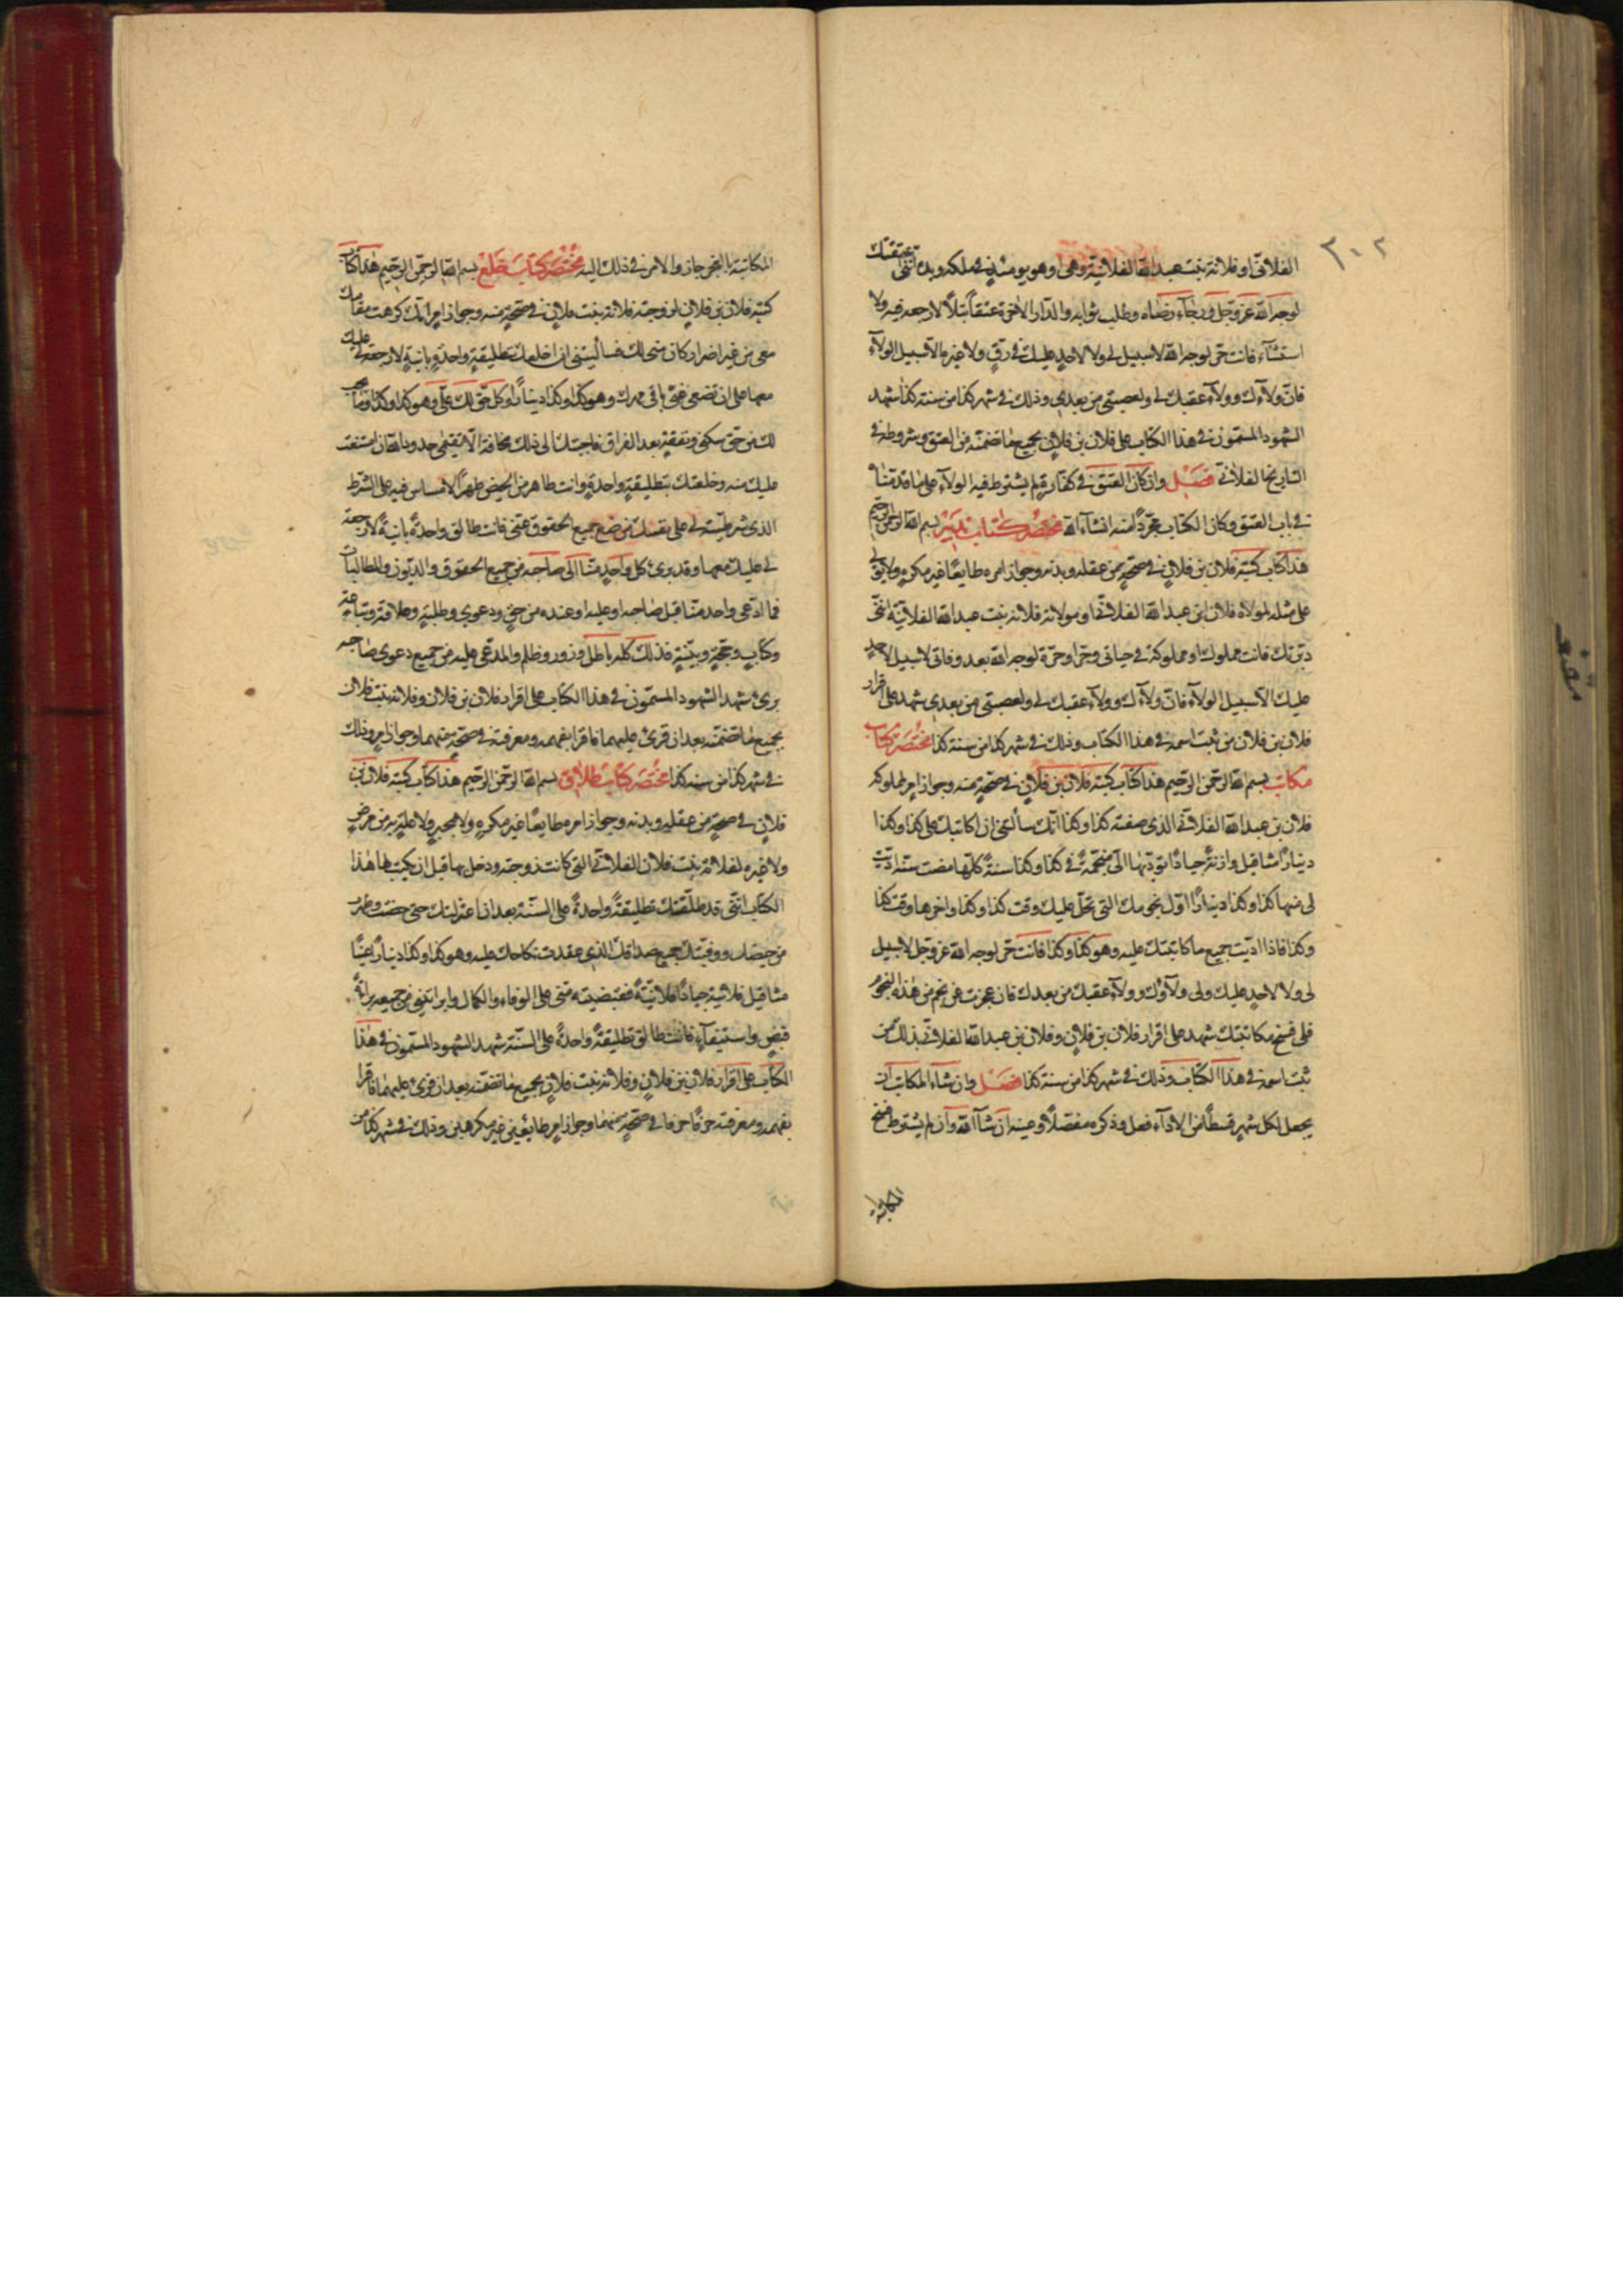 ٣٠٢
الفلاني او فلانة بنت عبد الله الفلانية وهي وهو يومئذ في ملكه ويده انني اعتقتك
لوجه الله عز وجل ورجاء رضاه وطلب ثوابه والدار الاخرة عتقاً بتلاً لا رجعة فيه ولا
استثناء فانت حر لوجه الله لا سبيل لي ولا لاحد عليك في رق ولا غيره الا سبيل الولاء
فان ولاءك وولاء عقبك لي ولعصبتي من بعدي وذلك في شهر كذا من سنة كذا شهد
الشهود المسمون في هذا الكتاب على فلان بن فلان بجميع ما تضمنه من العتق وشروطه في
التاريخ الفلاني فصل وان كان العتق في كفارة لم يشترط فيه الولاء على ما قدمناه
في باب العتق وكان الكتاب مجرداً منه انشاء الله مختصر كتاب تدبير بسم الله الرحمن الرحيم
هذا كتاب كتبه فلان بن فلان في صحة من عقله وبدنه وجواز امره طايعاً غير مكره ولا مولى
على مثله لمولاه فلان بن عبد الله الفلاني او مولاته فلانة بنت عبد الله الفلانية انني
دبرتك فانت مملوك او مملوكة في حياتي وحر او حرة لوجه الله بعد وفاتي لا سبيل لاحد
عليك الا سبيل الولاء فان ولاءك وولاء عقبك لي ولعصبتي من بعدي شهد على اقرار
فلان بن فلان من ثبت اسمه في هذا الكتاب وذلك في شهر كذا من سنة كذا مختصر كتاب
مكاتب بسم الله الرحمن الرحيم هذا كتاب كتبه فلان بن فلان في صحة منه وجواز امر لمملوكه
فلان بن عبد الله الفلاني الذي صفته كذا وكذا انك سألتني ان اكاتبك على كذا وكذا
ديناراً مثاقيل وازنة جياداً تؤديها الي منجمة في كذا وكذا سنة كلها مضت سنة اديت
لي منها كذا وكذا ديناراً اول نجومك التي تحل عليك وقت كذا وكذا واخرها وقت كذا
وكذا فاذا اديت جميع ما كاتبتك عليه وهو كذا وكذا فانت حر لوجه الله عز وجل لا سبيل
لي ولا لاحد عليك ولي ولاؤك وولاء عقبك من بعدك فان عجزت عن نجم من هذه النجوم
فلي فسخ مكاتبتك شهد على اقرار فلان بن فلان وفلان بن عبد الله الفلاني بذلك من
ثبت اسمه في هذا الكتاب وذلك في شهر كذا من سنة كذا فصل وان شاء المكاتب ان
يجعل لكل شهر قسطاً من الاداء فعل وذكره مفصلاً وعينه ان شاء الله وان لم يشترط فسخ
المكاتبة
المكاتبة بالعجز جاز والامر في ذلك اليه مختصر كتاب خلع بسم الله الرحمن الرحيم هذا كتاب
كتبه فلان بن فلان لزوجته فلانة بنت فلان في صحة منه وجواز امر انك كرهت مقامك
معي من غير اضرار كان مني لك فسألتني ان اخلعك بتطليقة واحدة بائنة لا رجعة لي عليك
معها على ان تضعي عني باقي مهرك وهو كذا وكذا ديناراً وكل حق لك علي وهو كذا وكذا وما يجب
لك من حق سكنى ونفقة بعد الفراق فاجبتك الى ذلك مخافة الا نقيم حدود الله ان امتنعت
عليك منه وخلعتك بتطليقة واحدة وانت طاهر من الحيض طهراً لا مساس فيه على الشرط
الذي شرطتيه لي على نفسك من وضع جميع الحقوق عني فانت طالق واحدة بائنة لا رجعة
لي عليك معها وقد برئ كل واحد منا الى صاحبه من جميع الحقوق والديون والمطالبات
فما ادعى واحد منا قبل صاحبه او عليه او عنده من حق ودعوى وطلبة وعلاقة وتباعة
وكتاب وحجة وبينة فذلك كله باطل وزور وظلم والمدعى عليه من جميع دعوى صاحبه
برئ شهد الشهود المسمون في هذا الكتاب على اقرار فلان بن فلان وفلانة بنت فلان
بجميع ما تضمنه بعد ان قرئ عليهما فاقرا بفهمه ومعرفته في صحة منهما وجواز امر وذلك
في شهر كذا من سنة كذا مختصر كتاب طلاق بسم الله الرحمن الرحيم هذا كتاب كتبه فلان بن
فلان في صحة من عقله وبدنه وجواز امره طايعاً غير مكره ولا مجبر ولا علة به من مرض
ولا غيره لفلانة بنت فلان الفلاني التي كانت زوجته ودخل بها قبل ان يكتب لها هذا
الكتاب انني قد طلقتك تطليقة واحدة على السنة بعد ان اعتزلتك حتى حضت وطهرت
من حيضك ووفيتك جميع صداقك الذي عقدت نكاحك عليه وهو كذا وكذا ديناراً عيناً
مثاقيل فلانية جياداً فلانية فقبضتيه مني على الوفاء والكمال وابراتني من جميعه براءة
قبض واستيفاء فانت طالق تطليقة واحدة على السنة شهد الشهود المسمون في هذا
الكتاب على اقرار فلان بن فلان وفلانة بنت فلان بجميع ما تضمنه بعد ان قرئ عليهما فاقرا
بفهمه ومعرفته حرفاً حرفاً في صحة منهما وجواز امر طايعين غير مكرهين وذلك في شهر كذا من